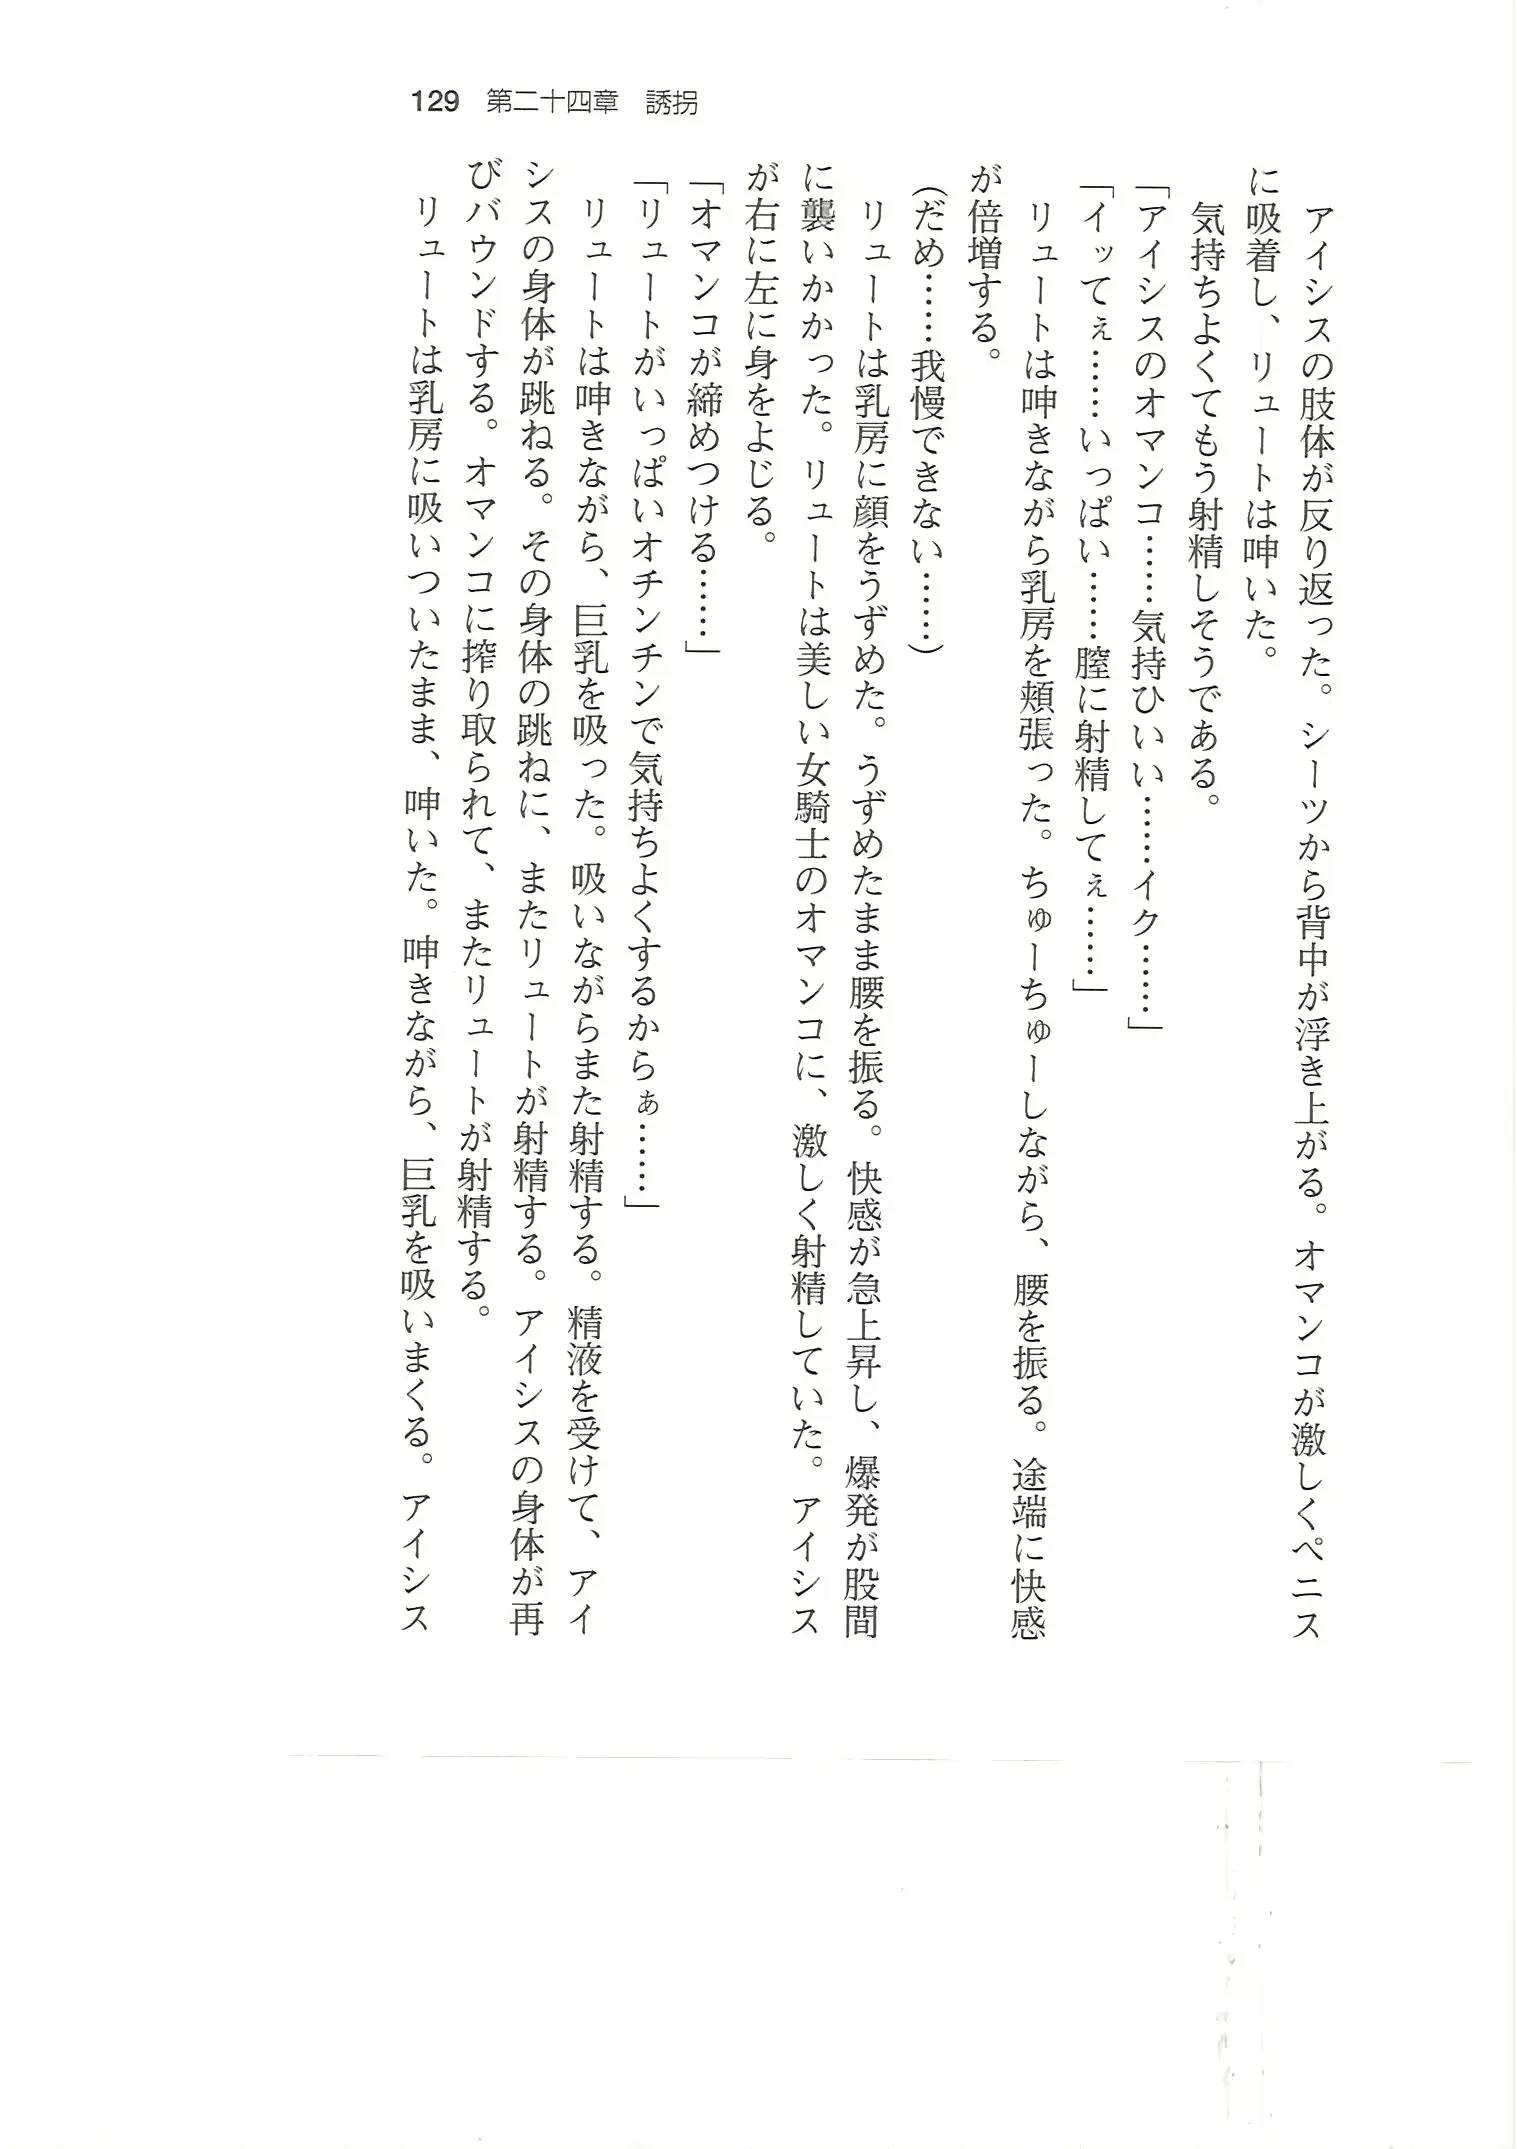 129 第二十四章 誘拐
アイシスの肢体が反り返った。シーツから背中が浮き上がる。オマンコが激しくペニス
に吸着し、リュートは呻いた。
気持ちよくてもう射精しそうである。
「アイシスのオマンコ……気持ひいい……イク……」
「イッてぇ……いっぱい……膣に射精してぇ……」
リュートは呻きながら乳房を頬張った。ちゅーちゅーしながら、腰を振る。途端に快感
が倍増する。
(だめ……我慢できない……)
リュートは乳房に顔をうずめた。うずめたまま腰を振る。快感が急上昇し、爆発が股間
に襲いかかった。リュートは美しい女騎士のオマンコに、激しく射精していた。アイシス
が右に左に身をよじる。
「オマンコが締めつける……」
「リュートがいっぱいオチンチンで気持ちよくするからぁ……」
リュートは呻きながら、巨乳を吸った。吸いながらまた射精する。精液を受けて、アイ
シスの身体が跳ねる。その身体の跳ねに、またリュートが射精する。アイシスの身体が再
びバウンドする。オマンコに搾り取られて、またリュートが射精する。
リュートは乳房に吸いついたまま、呻いた。呻きながら、巨乳を吸いまくる。アイシス